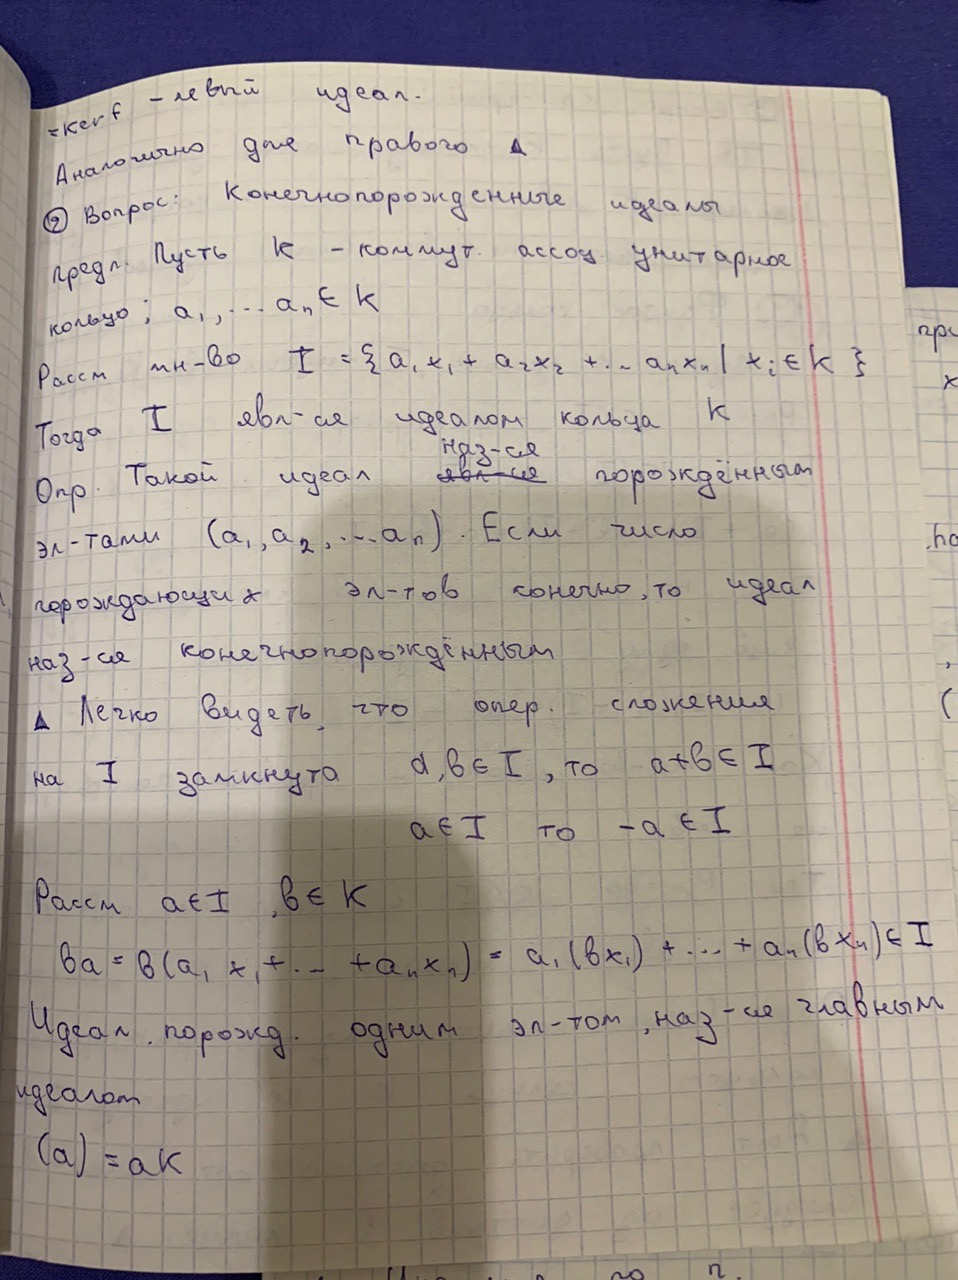 = Ker f – левый идеал.
Аналогично для правого ▲
② Вопрос: Конечнопорожденные идеалы
предл. Пусть K – коммут. ассоц унитарное
кольцо; a₁, ... aₙ ∈ K
Рассм мн-во I = { a₁x₁ + a₂x₂ + ... aₙxₙ | xᵢ ∈ K }
Тогда I явл-ся идеалом кольца K
наз-ся
Опр. Такой идеал явл-ся порождённым
эл-тами (a₁, a₂, ... aₙ). Если число
порождающих эл-тов конечно, то идеал
наз-ся конечнопорождённым
▲ Легко видеть, что опер. сложения
на I замкнута a, b ∈ I, то a+b ∈ I
a ∈ I то -a ∈ I
Рассм a ∈ I, b ∈ K
ba = b(a₁x₁ + ... + aₙxₙ) = a₁(bx₁) + ... + aₙ(bxₙ) ∈ I
Идеал, порожд. одним эл-том, наз-ся главным
идеалом
(a) = aK